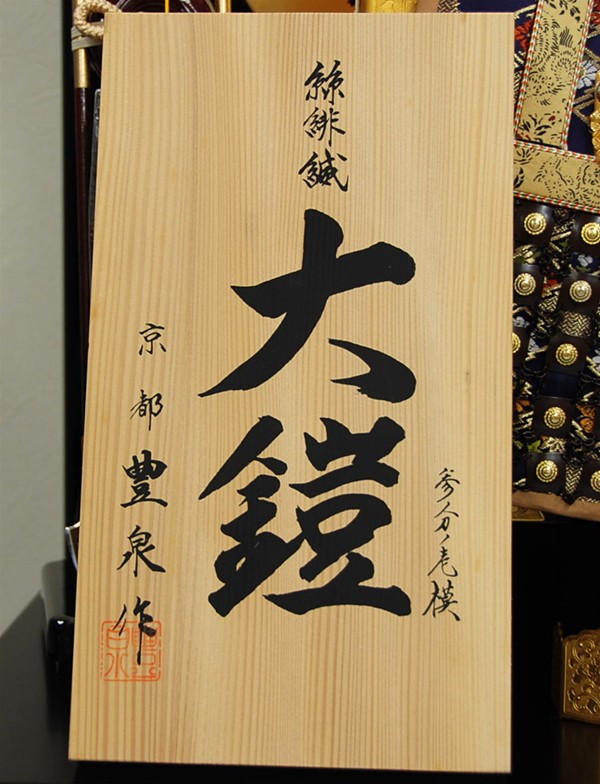 絲緋縅
大鎧
参分ノ壱模
京都豊泉作